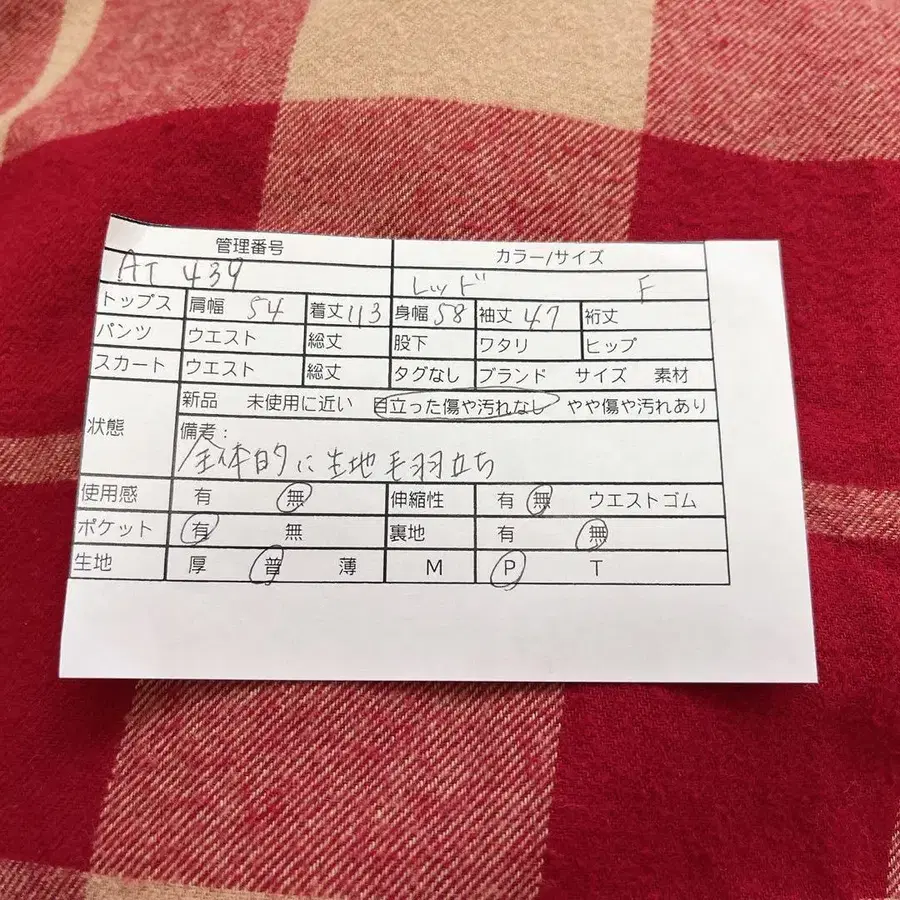 管理番号 カラー/サイズ
AT 439 レッド F
トップス 肩幅 54 着丈 113 身幅 58 袖丈 47 裄丈
パンツ ウエスト 総丈 股下 ワタリ ヒップ
スカート ウエスト 総丈 タグなし ブランド サイズ 素材
状態 新品 未使用に近い 目立った傷や汚れなし やや傷や汚れあり
備考:
全体的に生地毛羽立ち
使用感 有 無 伸縮性 有 無 ウエストゴム
ポケット 有 無 裏地 有 無
生地 厚 普 薄 M P T